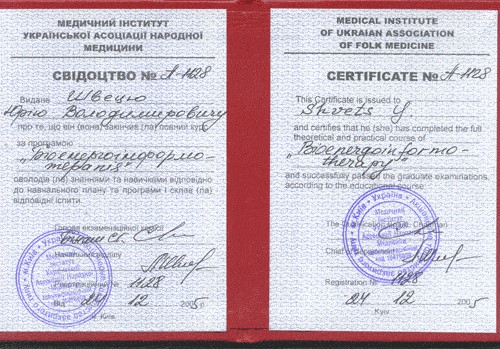 МЕДИЧНИЙ ІНСТИТУТ
УКРАЇНСЬКОЇ АСОЦІАЦІЇ НАРОДНОЇ
МЕДИЦИНИ
СВІДОЦТВО № А-1128
Видане Швецю
Юрію Володимировичу
про те, що він (вона) закінчив (ла) повний курс
за програмою
„Біоенергоінформо-
терапія"
оволодів (ла) знаннями та навичками відповідно
до навчального плану та програми і склав (ла)
відповідні іспити.
Голова екзаменаційної комісії
Начальник відділу
Реєстраційний № 1128
Від 24 12 2005р
м. Київ
MEDICAL INSTITUTE
OF UKRAIAN ASSOCIATION
OF FOLK MEDICINE
CERTIFICATE № A-1128
This Certificate is issued to
Shvets Y
and certifies that he (she) has completed the full
theoretical and practical course of
„Bioenergoinformo-
therapy"
and successfully passed the graduate examinations,
according to the educational course
The Examination Board Chairman
Chief of Department
Registration № 1128
24 12 2005
Kyiv